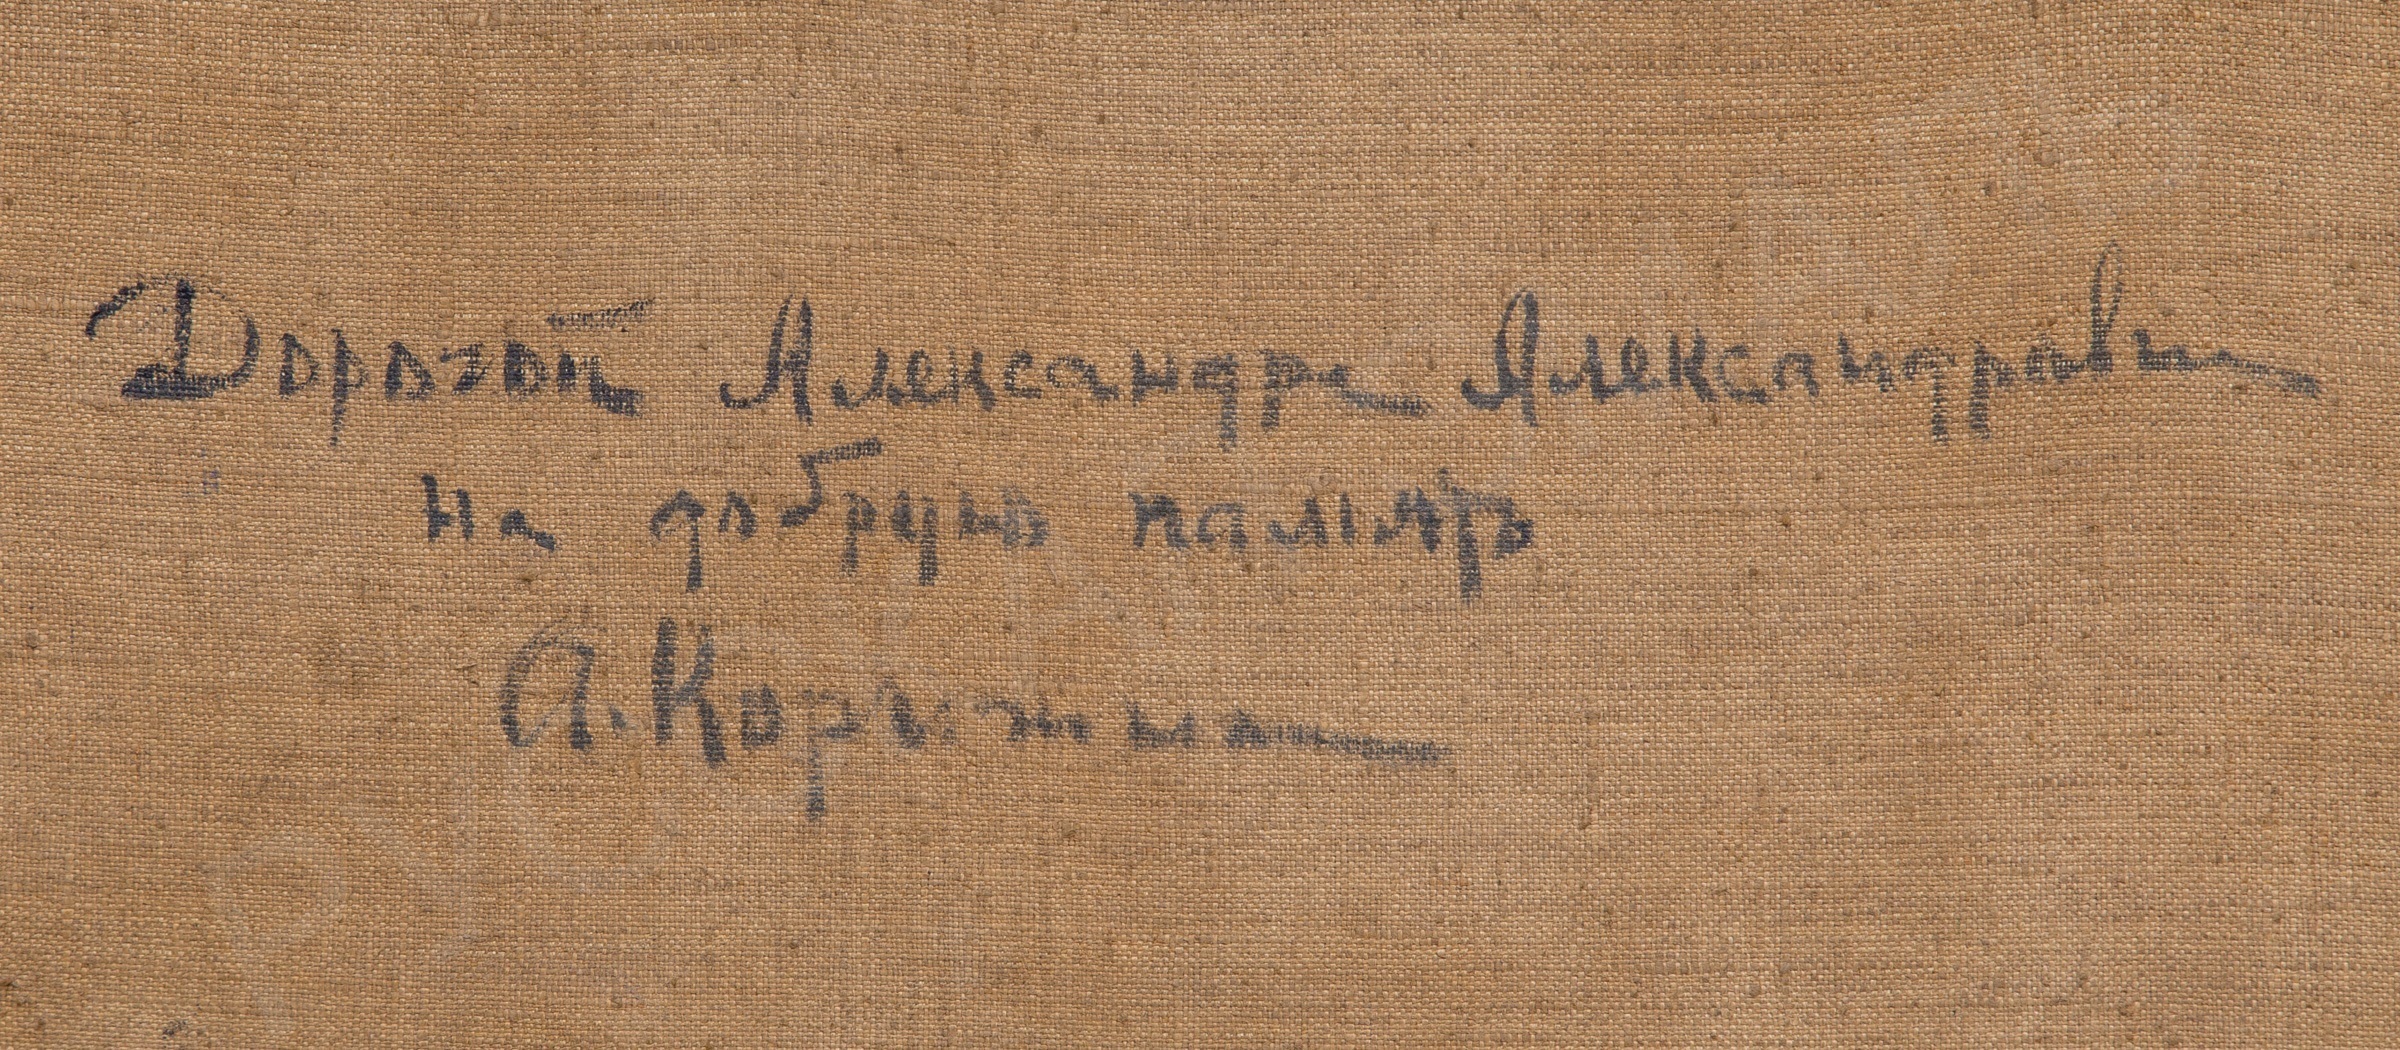 Дорогой Александре Александровне
на добрую память
А. Коры